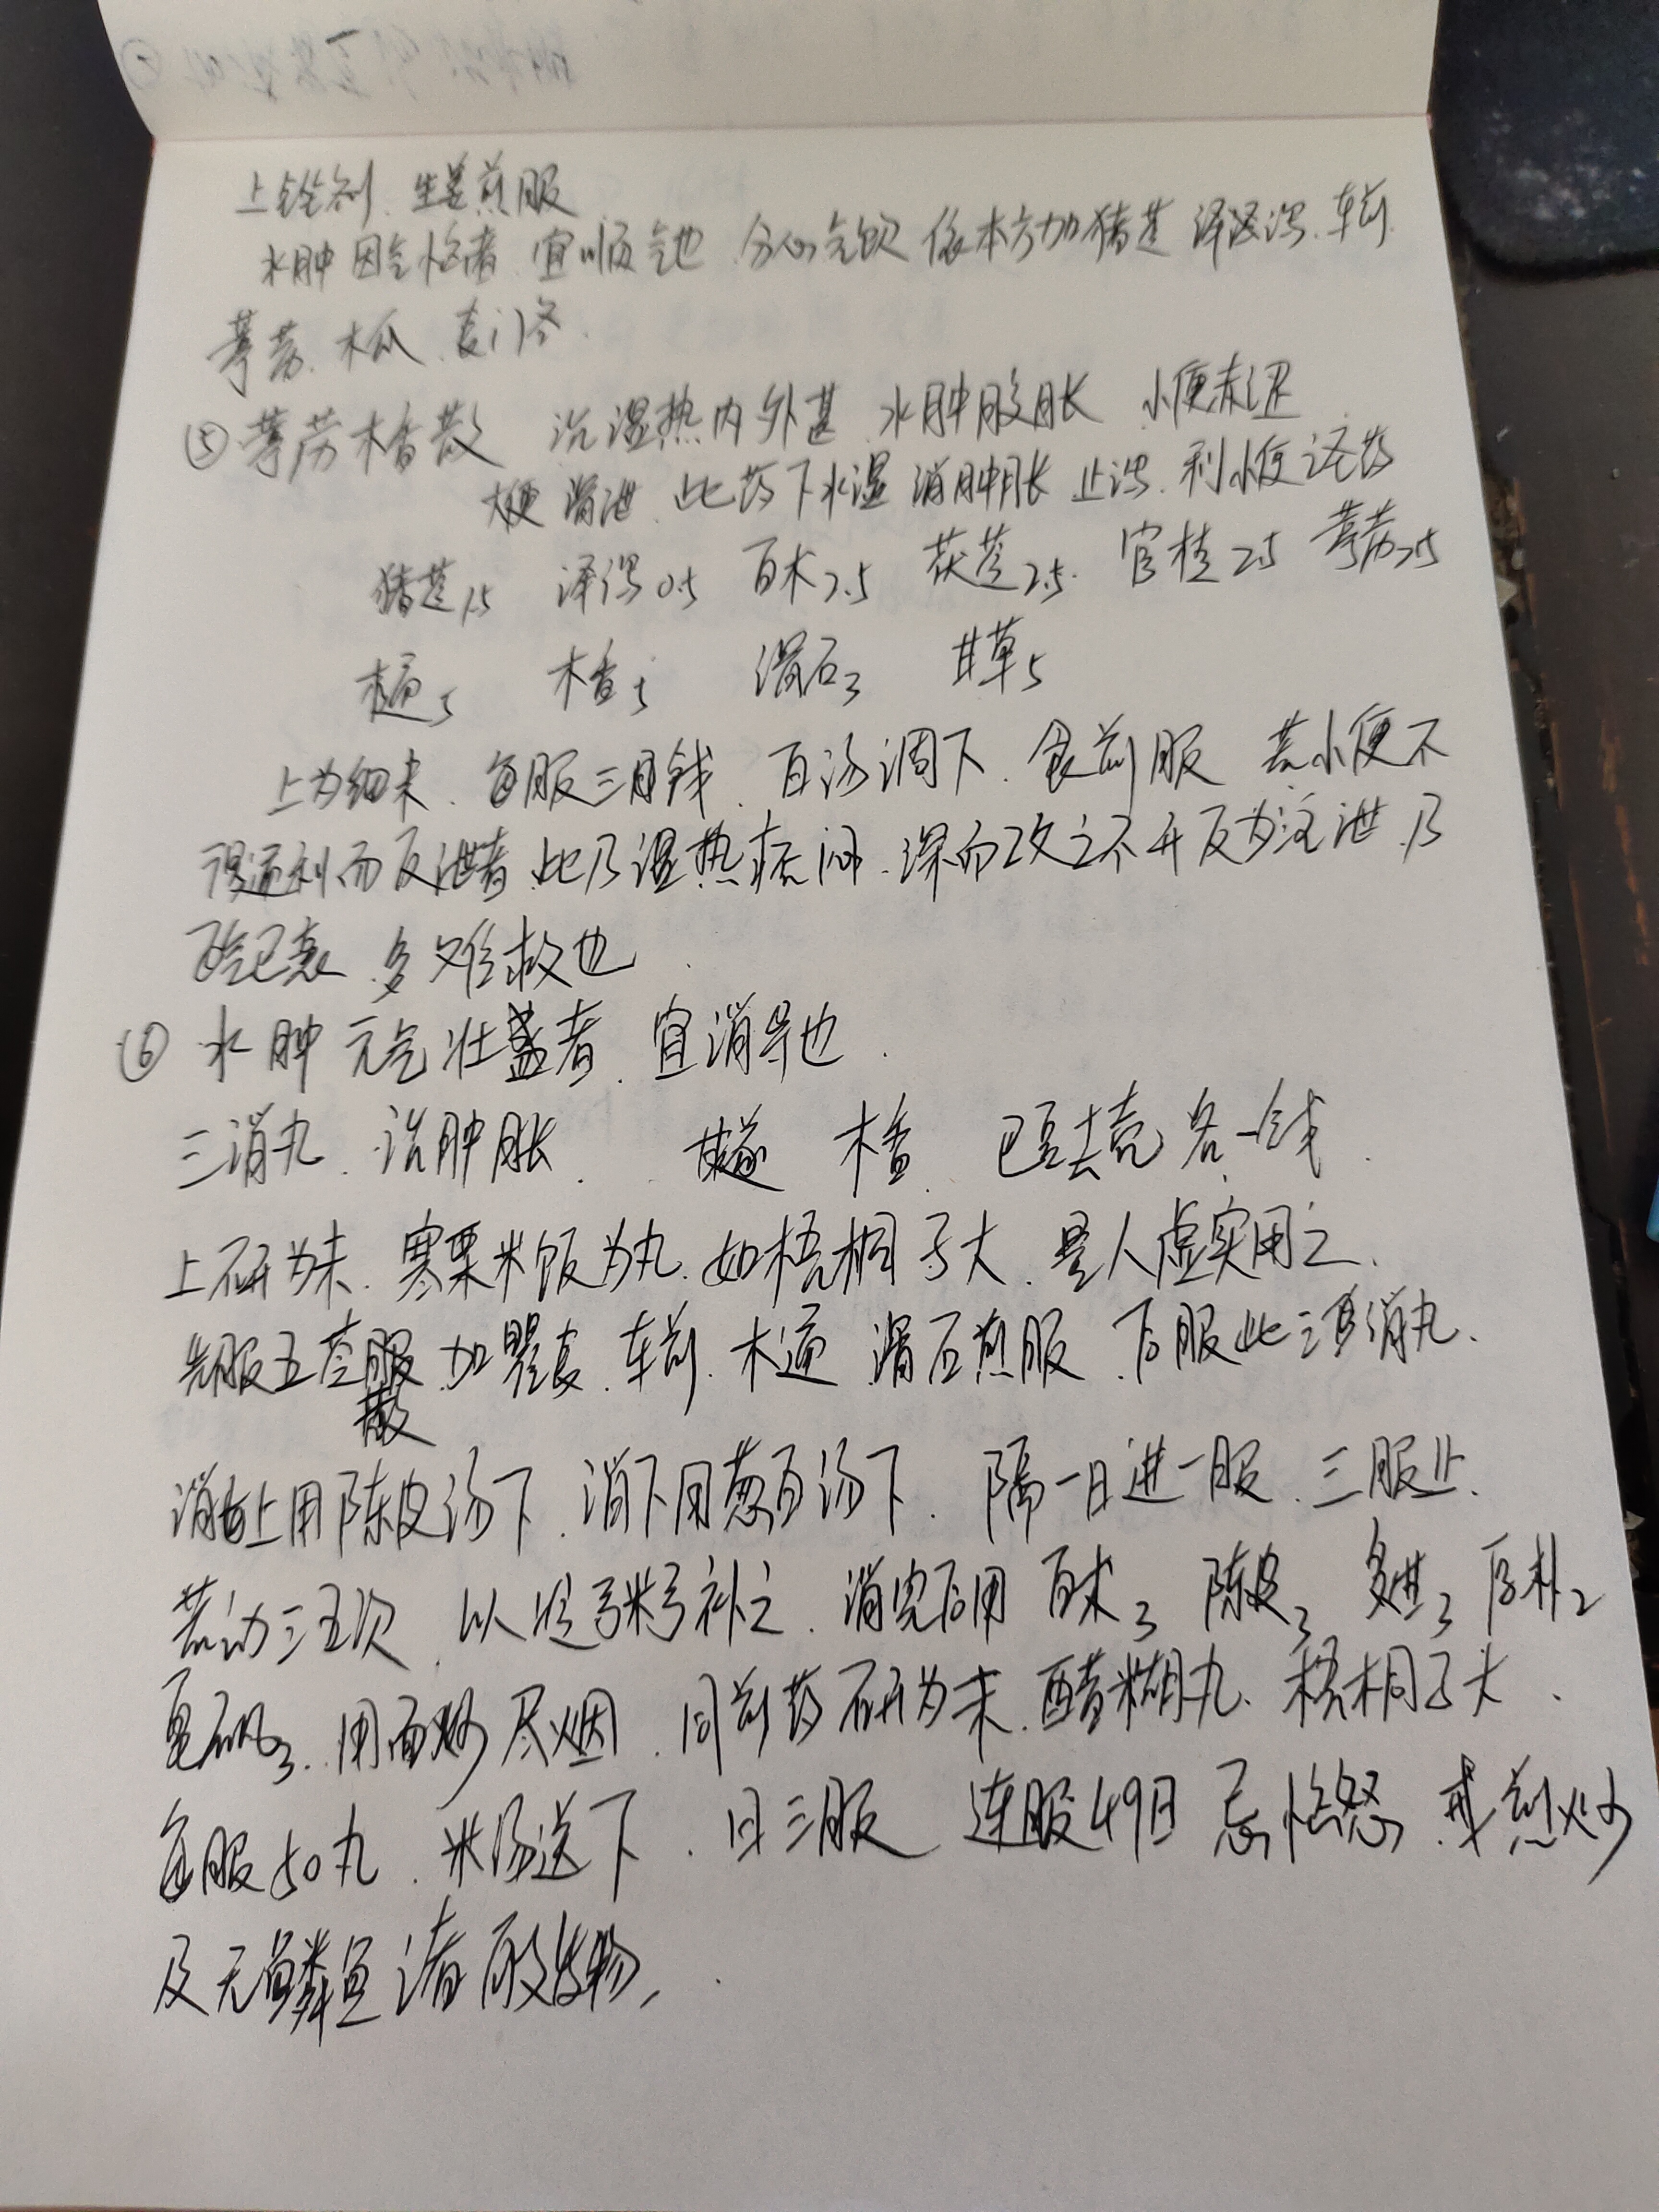 上锉剂、生姜煎服
水肿因气恼者、宜顺气也、分心气饮依本方加猪苓 泽泻、车前、
葶苈、木瓜、麦门冬、
⑤葶苈木香散 治湿热内外甚 水肿腹胀 小便赤涩
大便滑泄、此药下水湿 消肿胀 止泻、利小便之圣药
猪苓1.5 泽泻0.5 白术2.5 茯苓2.5 官桂2.5 葶苈2.5
木通5 木香5 滑石3 甘草5
上为细末、每服三钱、白汤调下、食前服 若小便不
得通利而反泄者、此乃湿热痞闭、深而攻之不开反为注泄、乃
正气已衰、多难救也、
⑥ 水肿元气壮盛者、宜消导也、
三消丸、治肿胀、 甘遂 木香、 巴豆去壳各一钱、
上研为末、寒粟米饭为丸、如梧桐子大、量人虚实用之、
先服五苓散加瞿麦、车前、木通 滑石煎服、后服此三消丸、
消上用陈皮汤下、消下用葱白汤下、隔一日进一服、三服止、
若动三五次、以 粥补之、消完后用白术3 陈皮3 3 厚朴2
皂矾3、用面炒尽烟、同前药研为末、醋糊丸、梧桐子大、
每服50丸、米汤送下、日三服 连服49日 忌恼怒、 煎炒
及无鳞鱼诸 发物、